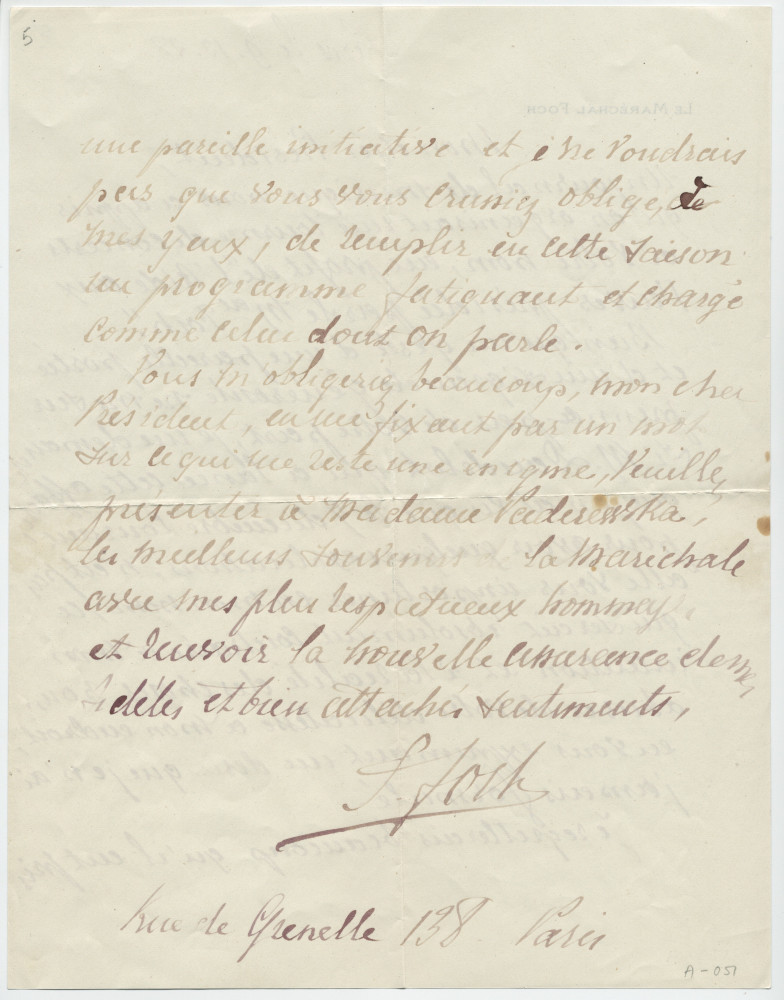 5
une pareille initiative et je ne voudrais
pas que vous vous crussiez obligé, de
mes yeux, de remplir en cette saison
un programme fatiguant et chargé
comme celui dont on parle.
Vous m'obligeriez beaucoup, mon cher
Président, en me fixant par un mot
sur ce qui me reste une énigme, Veuillez
présenter à Madame Paderewska,
les meilleurs souvenirs de la Maréchale
avec mes plus respectueux hommages
et recevoir la nouvelle assurance de mes
fidèles et bien attachés sentiments,
F. Foch
Rue de Grenelle 138 Paris
A-051